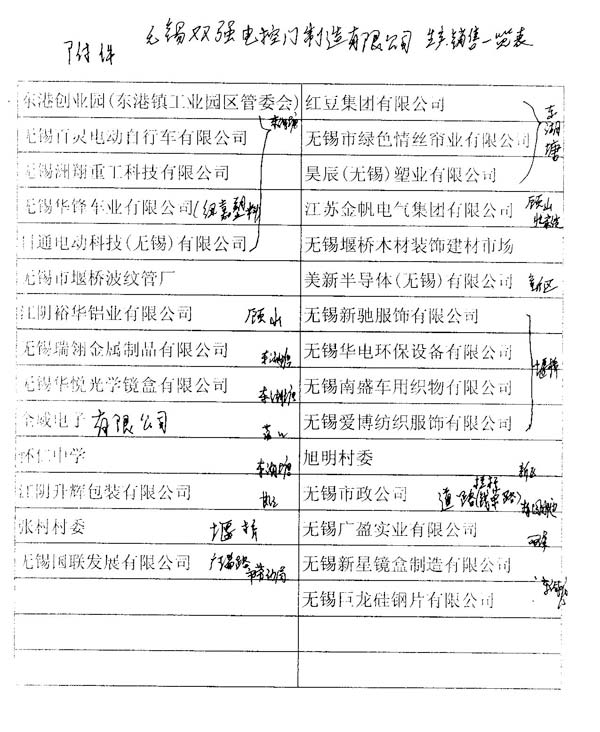 附件
无锡双强电控门制造有限公司 生产销售一览表
东港创业园(东港镇工业园区管委会) 红豆集团有限公司
东湖塘
无锡百灵电动自行车有限公司 无锡市绿色情丝帘业有限公司
东湖塘
无锡洲翔重工科技有限公司 昊辰(无锡)塑业有限公司
无锡华锋车业有限公司 江苏金帆电气集团有限公司 顾山
日通电动科技(无锡)有限公司 无锡堰桥木材装饰建材市场
无锡市堰桥波纹管厂 美新半导体(无锡)有限公司 新区
江阴裕华铝业有限公司 顾山 无锡新驰服饰有限公司
无锡瑞翎金属制品有限公司 东湖塘 无锡华电环保设备有限公司
堰桥
无锡华悦光学镜盒有限公司 东湖塘 无锡南盛车用织物有限公司
金威电子有限公司 无锡爱博纺织服饰有限公司
怀仁中学 东湖塘 旭明村委 新区
江阴升辉包装有限公司 无锡市政公司 道路
张村村委 堰桥 无锡广盈实业有限公司
无锡国联发展有限公司 无锡新星镜盒制造有限公司
无锡巨龙硅钢片有限公司 东湖塘